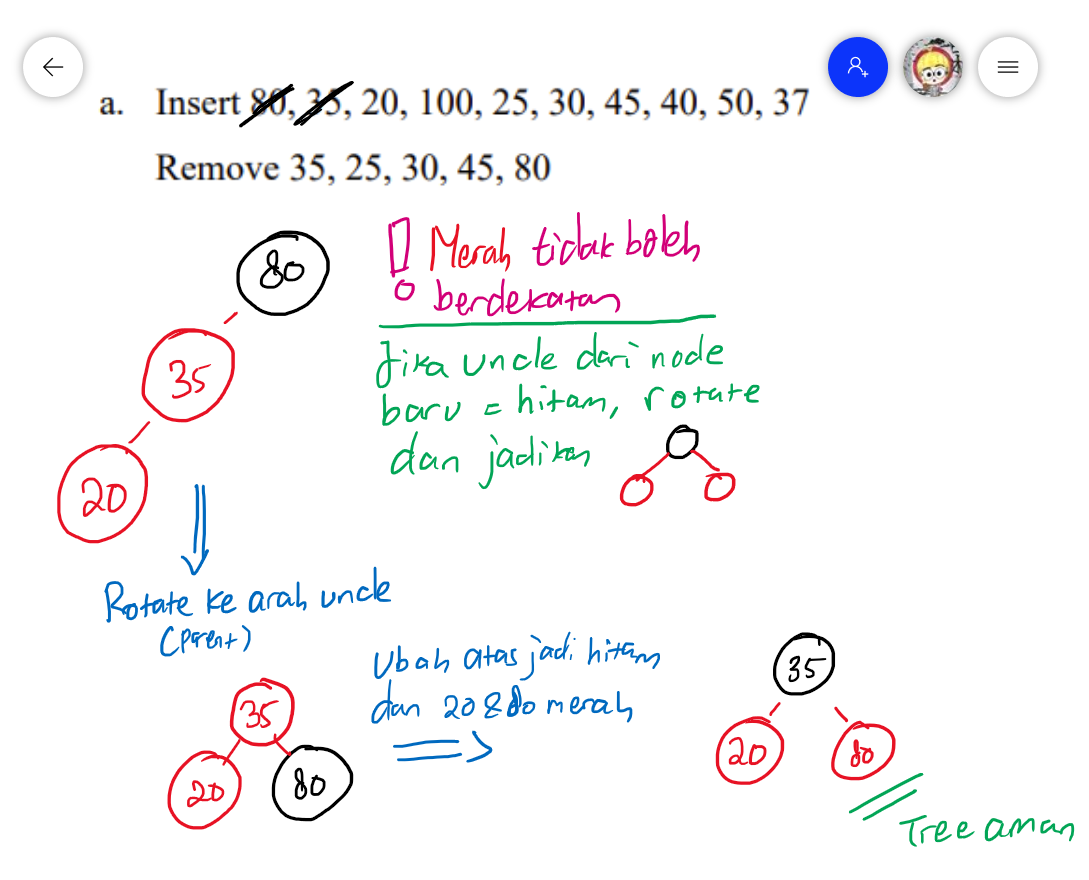 a. Insert 80, 35, 20, 100, 25, 30, 45, 40, 50, 37
Remove 35, 25, 30, 45, 80
80
35
20
! Merah tidak boleh
berdekatan
Jika uncle dari node
baru = hitam, rotate
dan jadikan
Rotate ke arah uncle
(parent)
35
20
80
Ubah atas jadi hitam
dan 20 & 80 merah
35
20
80
Tree aman